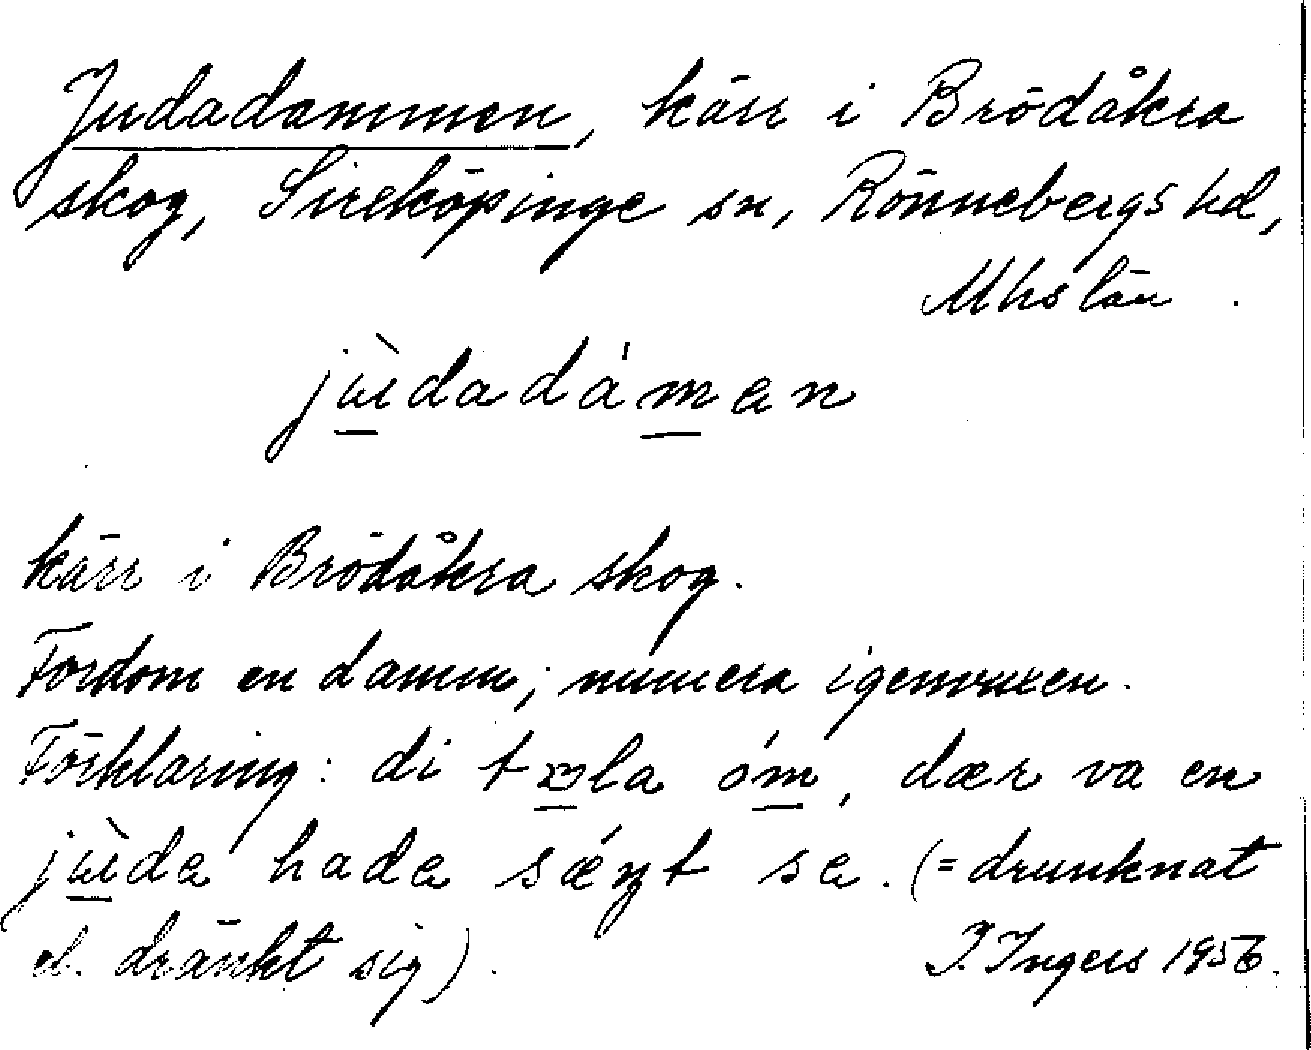 Judadammen, kärr i Brödåkra
skog, Sireköpinge sn, Rönnebergs hd,
Mhs län.
jùdadámen
kärr i Brödåkra skog.
Fordom en damm; numera igenvuxen.
Förklaring: di tola óm, dær va en
jùde hade sǽŋt se. (= drunknat
el. dränkt sig).
I. Ingers 1956.